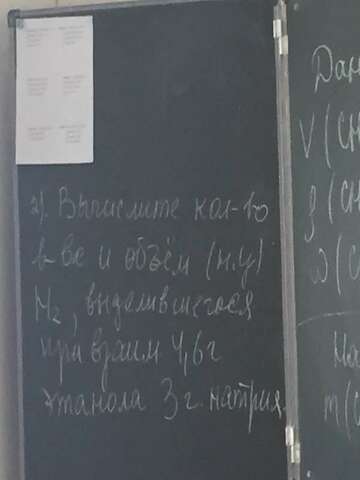 2). Вычислите кол-во
в-ва и объём (н.у)
H₂, выделившегося
при взаим 4,6г
этанола 3г. натрия.
Дан
V(CH
ρ(CH
ω(C
На
m(C